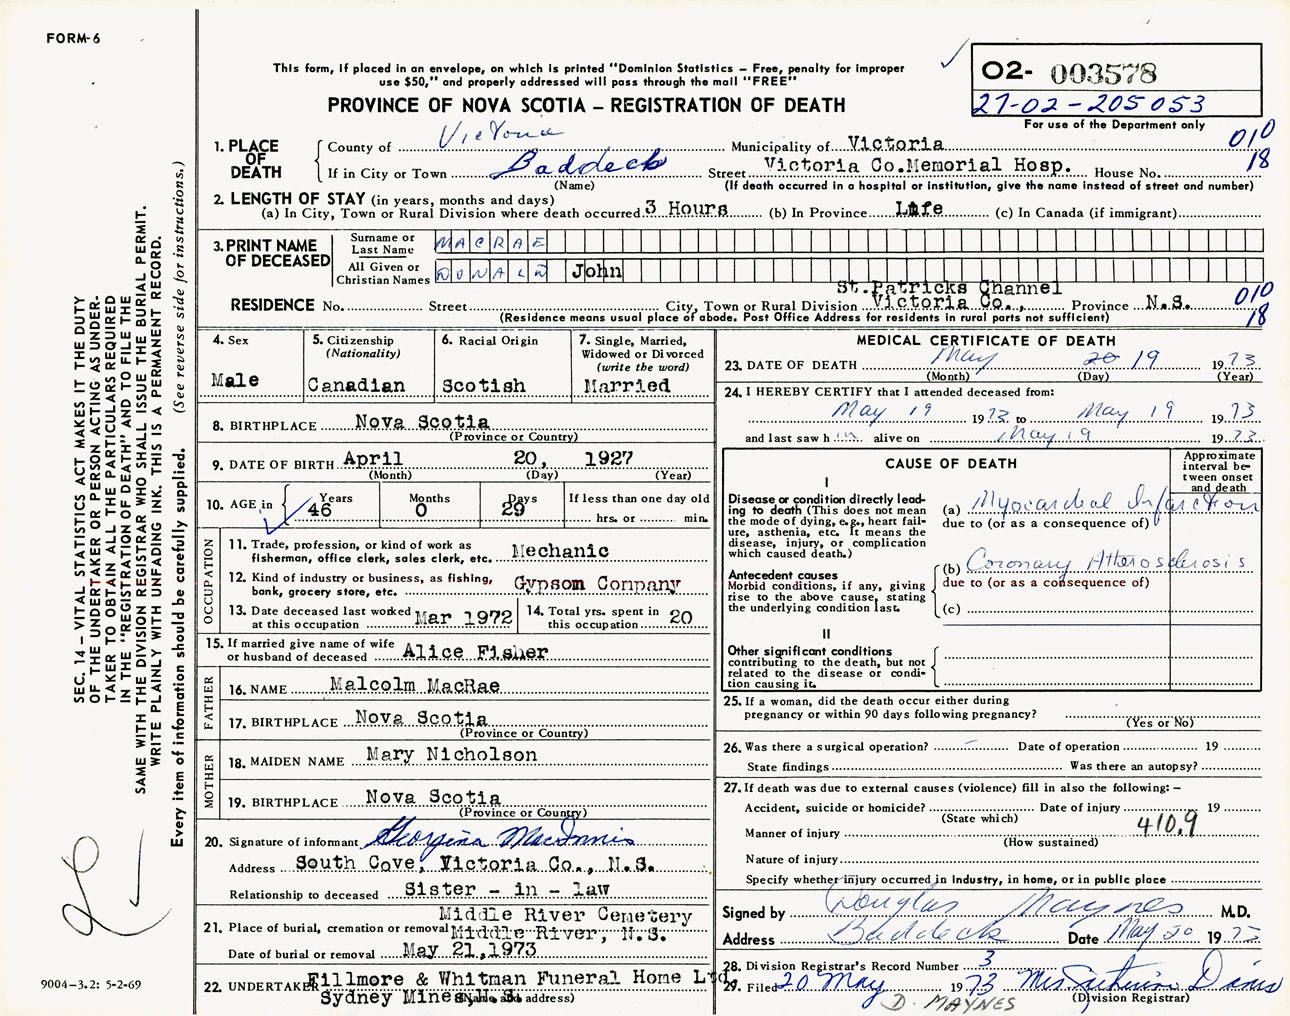 FORM-6
This form, if placed in an envelope, on which is printed "Dominion Statistics – Free, penalty for improper
use $50," and properly addressed will pass through the mail "FREE"
PROVINCE OF NOVA SCOTIA – REGISTRATION OF DEATH
O2- 003578
27-02-205053
For use of the Department only
SEC. 14 – VITAL STATISTICS ACT MAKES IT THE DUTY
OF THE UNDERTAKER OR PERSON ACTING AS UNDER-
TAKER TO OBTAIN ALL THE PARTICULARS REQUIRED
IN THE "REGISTRATION OF DEATH" AND TO FILE THE
SAME WITH THE DIVISION REGISTRAR WHO SHALL ISSUE THE BURIAL PERMIT.
WRITE PLAINLY WITH UNFADING INK. THIS IS A PERMANENT RECORD.
Every item of information should be carefully supplied. (See reverse side for instructions.)
1. PLACE OF DEATH
County of Victoria Municipality of Victoria 010
If in City or Town Baddeck Street Victoria Co.Memorial Hosp. House No. 18
(Name) (If death occurred in a hospital or institution, give the name instead of street and number)
2. LENGTH OF STAY (in years, months and days)
(a) In City, Town or Rural Division where death occurred 3 Hours (b) In Province Life (c) In Canada (if immigrant)
3. PRINT NAME OF DECEASED
Surname or Last Name MACRAE
All Given or Christian Names DONALD John
St.Patricks Channel
RESIDENCE No. Street City, Town or Rural Division Victoria Co., Province N.S. 010
(Residence means usual place of abode. Post Office Address for residents in rural parts not sufficient) 18
4. Sex
Male
5. Citizenship
(Nationality)
Canadian
6. Racial Origin
Scotish
7. Single, Married,
Widowed or Divorced
(write the word)
Married
8. BIRTHPLACE Nova Scotia
(Province or Country)
9. DATE OF BIRTH April 20, 1927
(Month) (Day) (Year)
10. AGE in Years 46 Months 0 Days 29 If less than one day old
hrs. or min.
OCCUPATION
11. Trade, profession, or kind of work as
fisherman, office clerk, sales clerk, etc. Mechanic
12. Kind of industry or business, as fishing,
bank, grocery store, etc. Gypsom Conpany
13. Date deceased last worked
at this occupation Mar 1972
14. Total yrs. spent in
this occupation 20
15. If married give name of wife
or husband of deceased Alice Fisher
FATHER
16. NAME Malcolm MacRae
17. BIRTHPLACE Nova Scotia
(Province or Country)
MOTHER
18. MAIDEN NAME Mary Nicholson
19. BIRTHPLACE Nova Scotia
(Province or Country)
20. Signature of informant Georgina MacInnis
Address South Cove, Victoria Co., N.S.
Relationship to deceased Sister - in - law
Middle River Cemetery
21. Place of burial, cremation or removal Middle River, N.S.
Date of burial or removal May 21,1973
22. UNDERTAKER Fillmore & Whitman Funeral Home Ltd.
Sydney Mines, N.S.
(Name and address)
9004-3.2: 5-2-69
MEDICAL CERTIFICATE OF DEATH
23. DATE OF DEATH May 20 19 1973
(Month) (Day) (Year)
24. I HEREBY CERTIFY that I attended deceased from:
May 19 1973 to May 19 1973
and last saw h im alive on May 19 1973
CAUSE OF DEATH
Approximate
interval be-
tween onset
and death
I
Disease or condition directly lead-
ing to death (This does not mean
the mode of dying, e.g., heart fail-
ure, asthenia, etc. It means the
disease, injury, or complication
which caused death.)
(a) Myocardial Infarction
due to (or as a consequence of)
Antecedent causes
Morbid conditions, if any, giving
rise to the above cause, stating
the underlying condition last.
(b) Coronary Atherosclerosis
due to (or as a consequence of)
(c)
II
Other significant conditions
contributing to the death, but not
related to the disease or condi-
tion causing it.
25. If a woman, did the death occur either during
pregnancy or within 90 days following pregnancy?
(Yes or No)
26. Was there a surgical operation? – Date of operation 19
State findings Was there an autopsy?
27. If death was due to external causes (violence) fill in also the following: –
Accident, suicide or homicide? Date of injury 19
(State which)
Manner of injury 410.9
(How sustained)
Nature of injury
Specify whether injury occurred in Industry, in home, or in public place
Signed by Douglas Maynes M.D.
Address Baddeck Date May 20 1973
28. Division Registrar's Record Number 3
29. Filed 20 May 1973 Mrs. Davis
(Division Registrar)
D. MAYNES